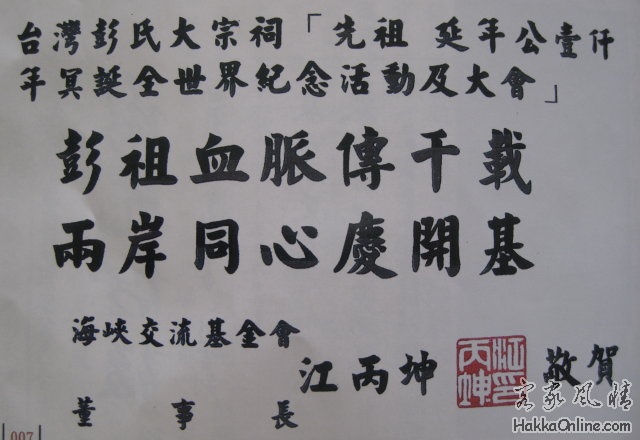 台灣彭氏大宗祠「先祖 延年公壹仟
年冥誕全世界紀念活動及大會」
彭祖血脈傳千載
兩岸同心慶開基
海峽交流基金會
董事長
江丙坤
江丙坤印
敬賀
客家風情
HakkaOnline.com
007